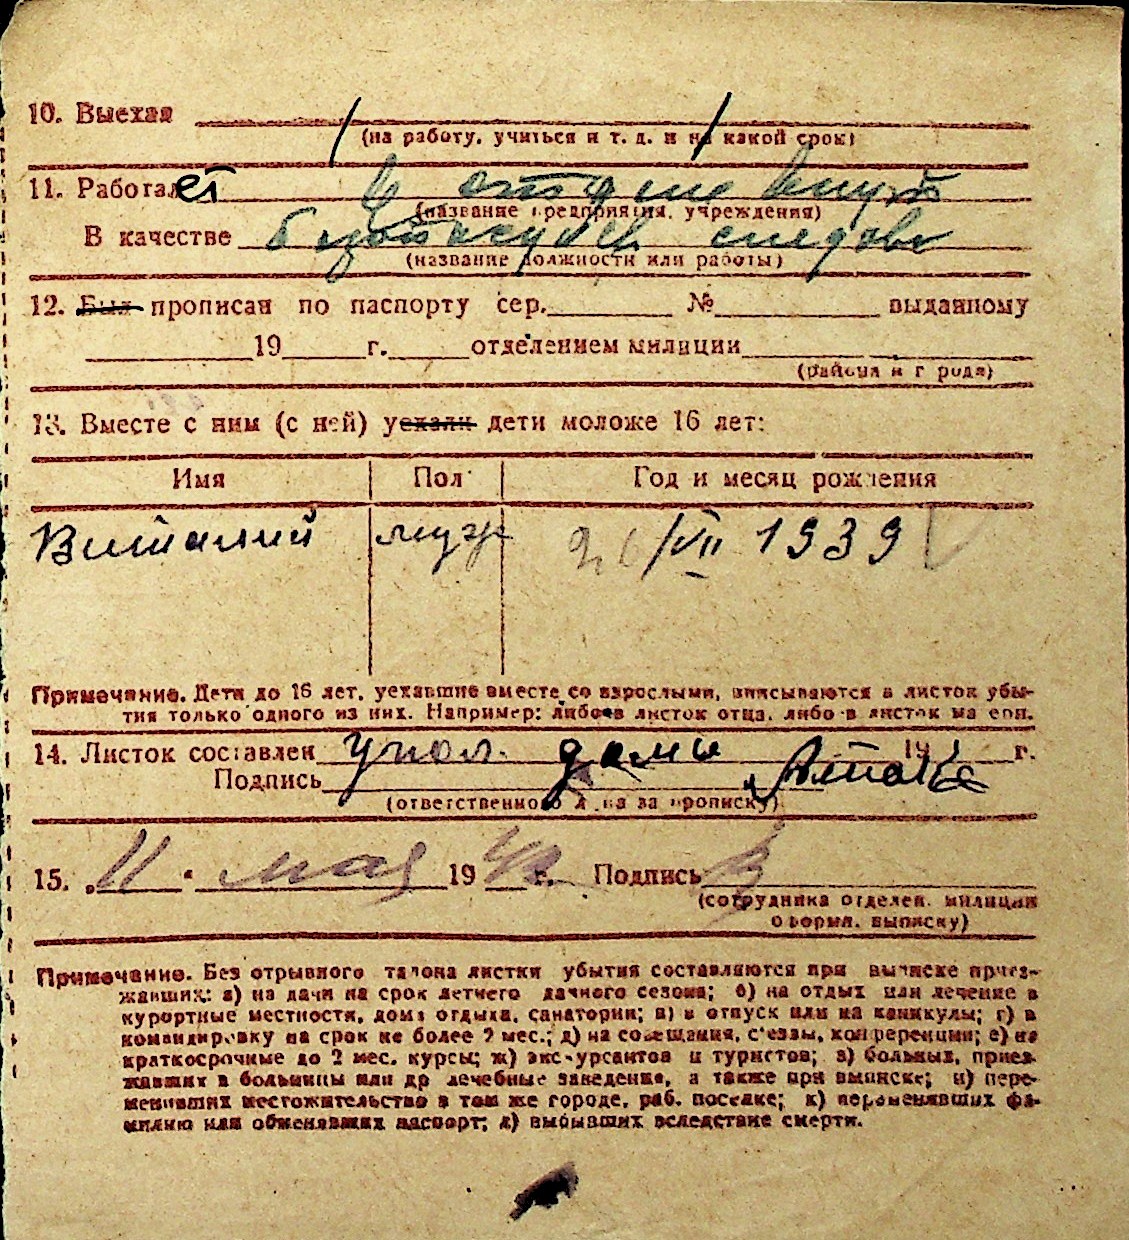 10. Выехал
(на работу, учиться и т. д. и на какой срок)
11. Работает в
(название предприятия, учреждения)
В качестве
(название должности или работы)
12. Был прописан по паспорту сер. № выданному
19 г. отделением милиции
(района и города)
13. Вместе с ним (с ней) уехали дети моложе 16 лет:
Имя Пол Год и месяц рождения
Виталий муж 26/VII 1939
Примечание. Дети до 16 лет, уехавшие вместе со взрослыми, вписываются в листок убы-
тия только одного из них. Например: либо в листок отца, либо в листок матери.
14. Листок составлен упол. дома 19 г.
Подпись
(ответственного лица за прописку)
15. „11" мая 1942 г. Подпись
(сотрудника отделен. милиции
оформ. выписку)
Примечание. Без отрывного талона листки убытия составляются при выписке приез-
жавших: а) на дачи на срок летнего дачного сезона; б) на отдых или лечение в
курортные местности, дома отдыха, санатории; в) в отпуск или на каникулы; г) в
командировку на срок не более 2 мес.; д) на совещания, с'езды, конференции; е) на
краткосрочные до 2 мес. курсы; ж) экскурсантов и туристов; з) больных, приез-
жавших в больницы или др лечебные заведения, а также при выписке; и) пере-
менивших местожительство в том же городе, раб. поселке; к) переменявших фа-
милию или обменявших паспорт; л) выбывших вследствие смерти.